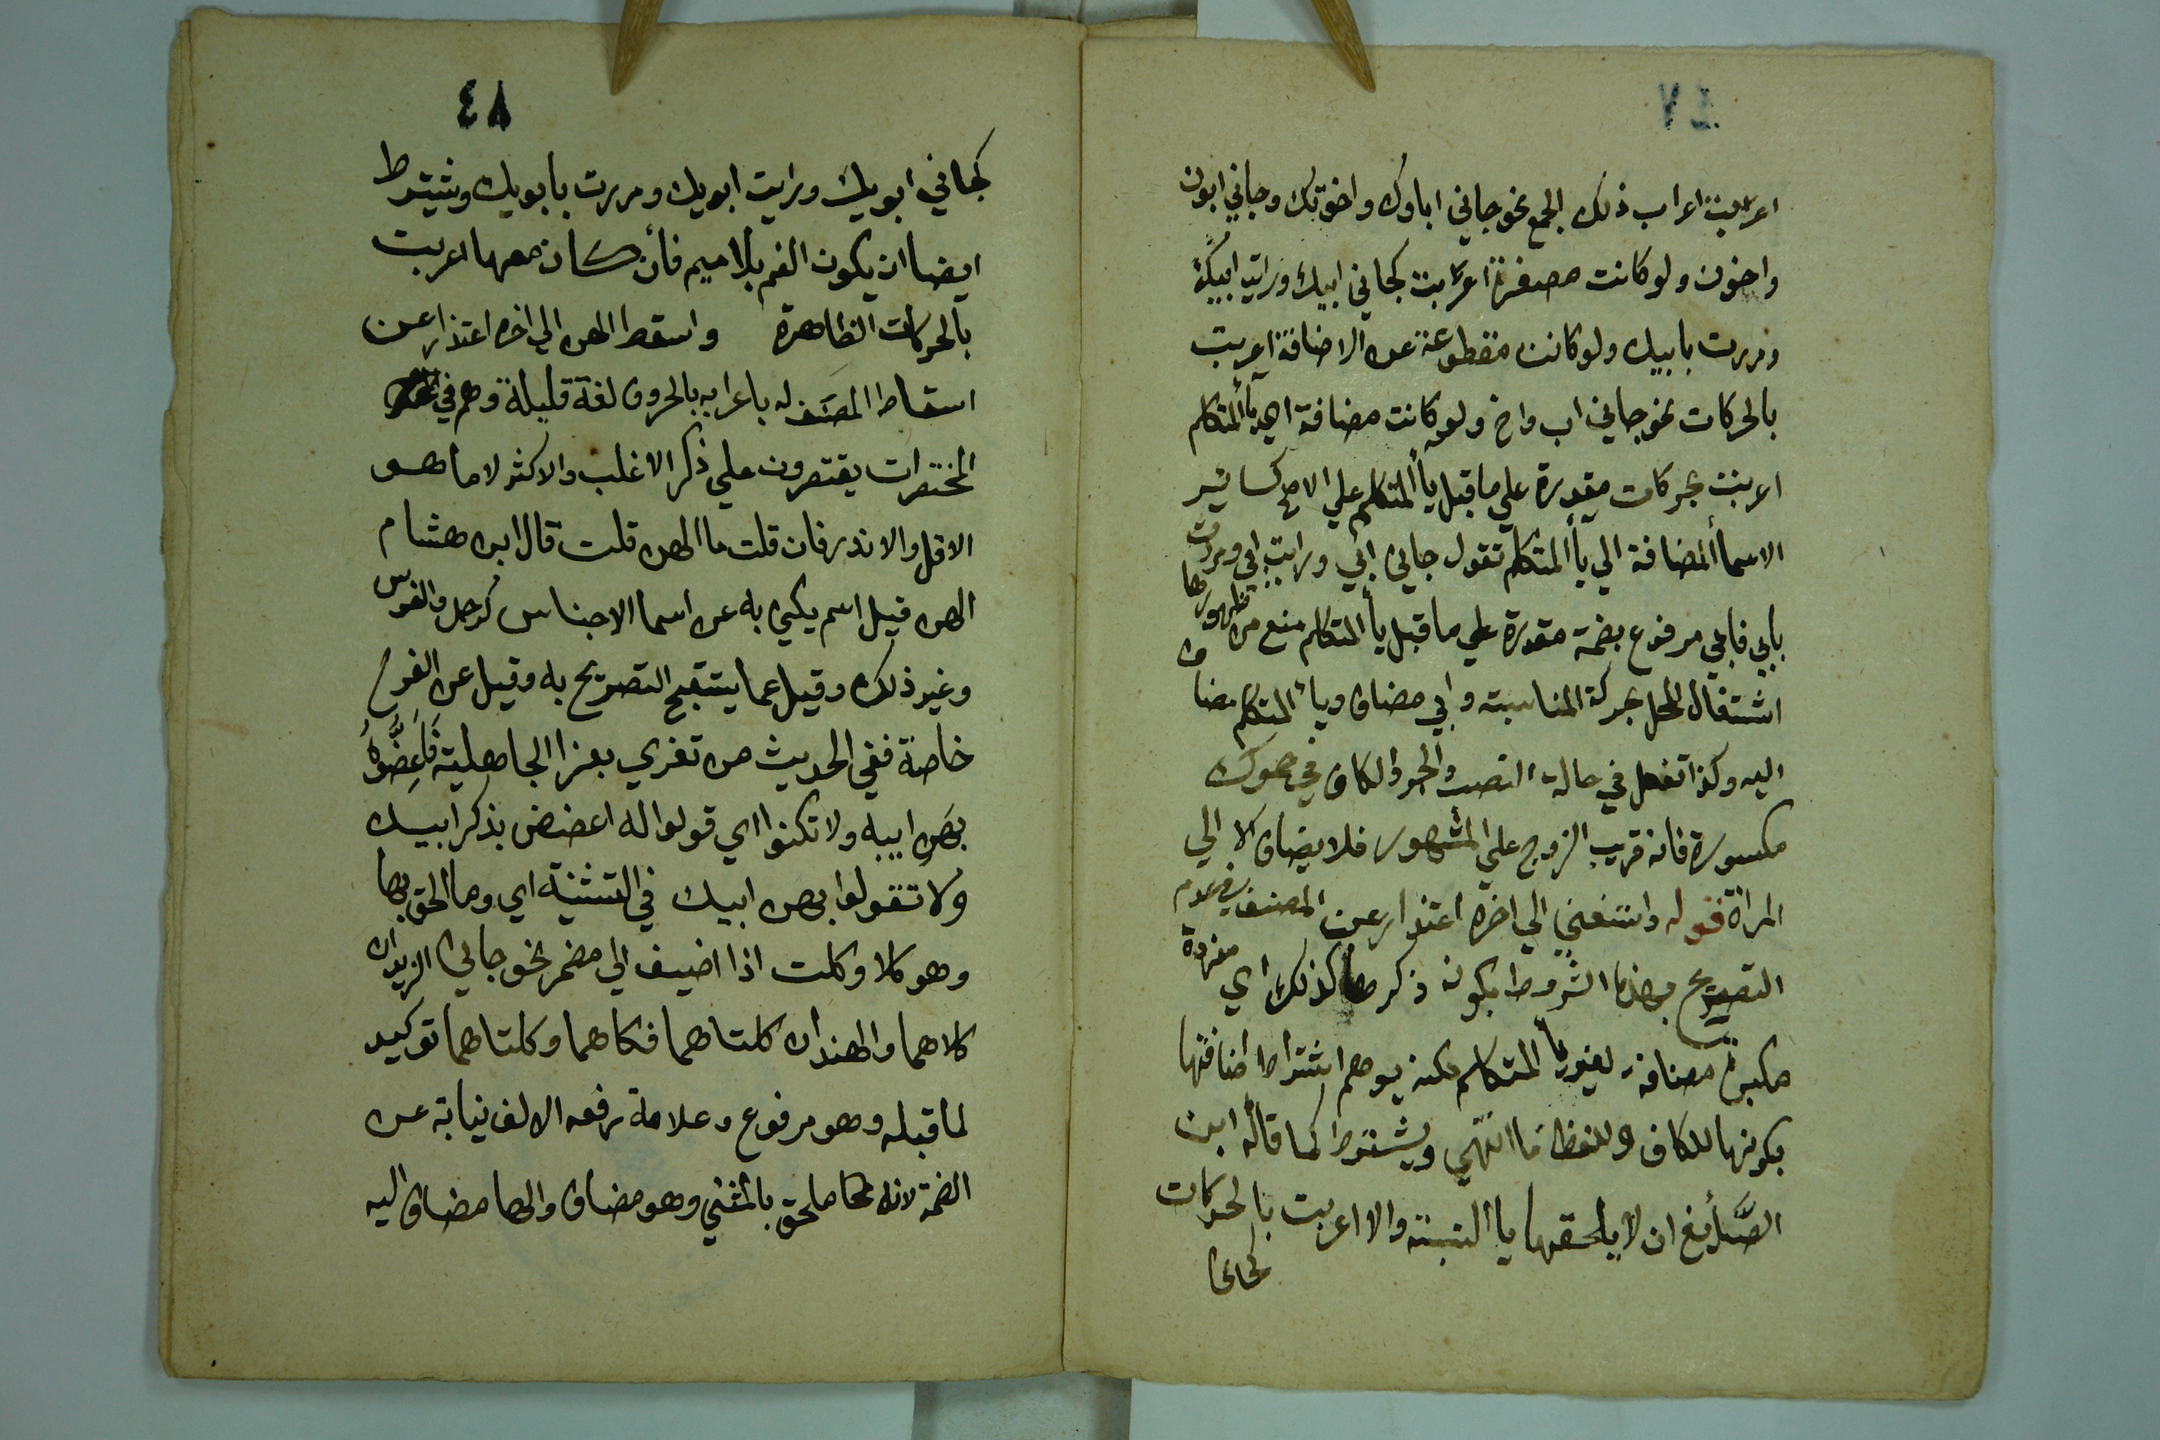 ٤٧
اعربت اعراب ذلك الجمع نحو جاني اباوك واخوتك وجاني ابون
واخون ولو كانت مصغرة اعربت كجاني ابيك ورايت ابيك
ومررت بابيك ولو كانت مقطوعة عن الاضافة اعربت
بالحركات نحو جاني اب واخ ولو كانت مضافة الي يأ المتكلم
اعربت بحركات مقدرة علي ما قبل يأ المتكلم علي الاصح كسائر
الاسمأ المضافة الي يأ المتكلم تقول جاني ابي ورايت ابي ومررت
بابي فابي مرفوع بضمة مقدرة علي ما قبل يأ المتكلم منع من ظهورها
اشتغال المحل بحركة المناسبة وابي مضاف ويأ المتكلم مضاف
اليه وكذا تفعل في حالة النصب والجر والكاف في حموك
مكسورة فانه قريب الزوج علي المشهور فلا يضاف الا الي
المراة قوله واستغني الي اخره اعتذار عن المصنف في عدم
التصريح بهذه الشروط بكونه ذكرها كذلك اي مفردة
مكبرة مضافة لغير يأ المتكلم لكنه يوهم اشتراط اضافتها
بكونها للكاف وللفظ ما انتهي ويشترط كما قاله ابن
الصَّائغ ان لا يلحقها يا النسبة والا اعربت بالحركات
كجاني
٤٨
كجاني ابويك ورايت ابويك ومررت بابويك وشيترط
ايضا ان يكون الفم بلا ميم فأن كان معها اعربت
بالحركات الظاهرة واسقط الهن الي اخره اعتذار عن
اسقاط المصنف له باعرابه بالحروف لغة قليلة وهم في
المختصرات يقتصرون علي ذكر الاغلب والاكثر لا ما هو
الاقل والاندر فان قلت ما الهن قلت قال ابن هشام
الهن قيل اسم يكني به عن اسما الاجناس كرجل والفرس
وغير ذلك وقيل عما يستقبح التصريح به وقيل عن الفرج
خاصة ففي الحديث من تعزي بعزا الجاهلية فَاَعِضُّوهُ
بهَنِ ابيه ولا تكنوا اي قولوا له اعضض بذكر ابيك
ولا تقولوا بهن ابيك في التثنية اي وما الحق بها
وهو كلا وكلت اذا اضيف الي مضمر نحو جاني الزيدان
كلاهما والهندان كلتاهما فكلاهما وكلتاهما توكيد
لما قبله وهو مرفوع وعلامة رفعه الالف نيابة عن
الضمة لانه ملحق بالمثني وهو مضاف والها مضاف اليه